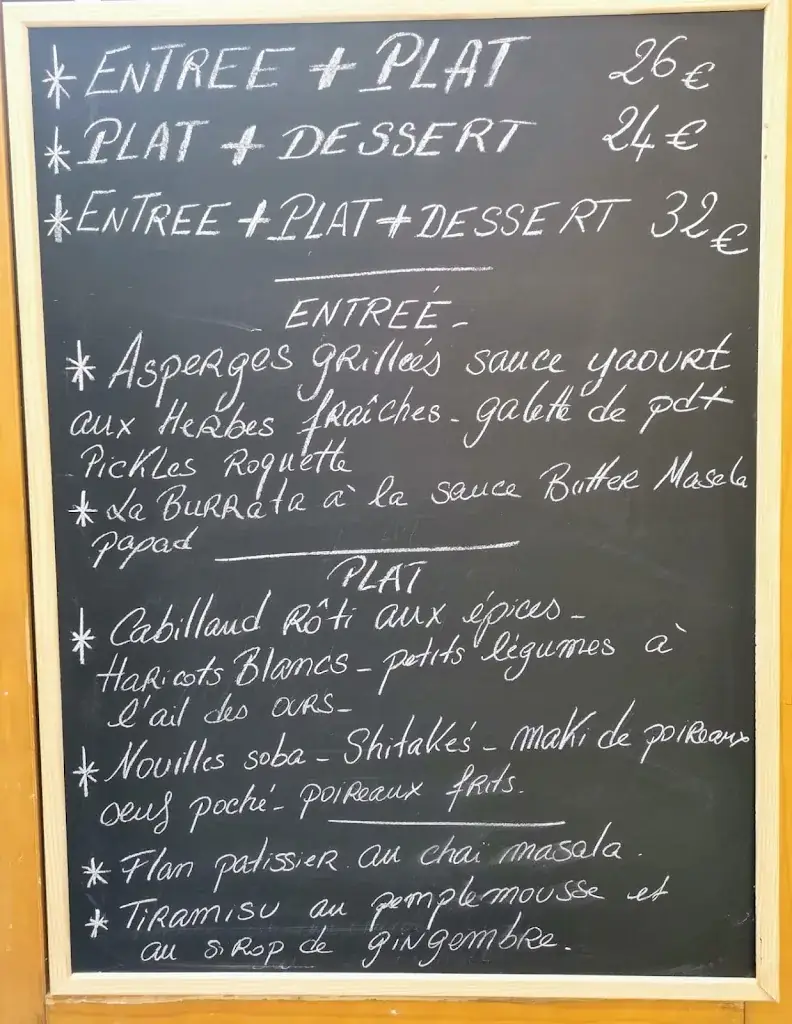 * ENTREE + PLAT 26 €
* PLAT + DESSERT 24 €
* ENTREE + PLAT + DESSERT 32 €
ENTREÉ-
* Asperges grillées sauce yaourt
aux Herbes fraîches - galette de pdt
Pickles Roquette
* La Burrata à la sauce Butter Masala
papad
PLAT
* Cabillaud Rôti aux épices -
Haricots Blancs - petits légumes à
l'ail des ours -
* Nouilles soba - Shitakés - maki de poireaux
oeuf poché - poireaux frits.
* Flan patissier au chaï masala.
* Tiramisu au pemplemousse et
au sirop de gingembre.